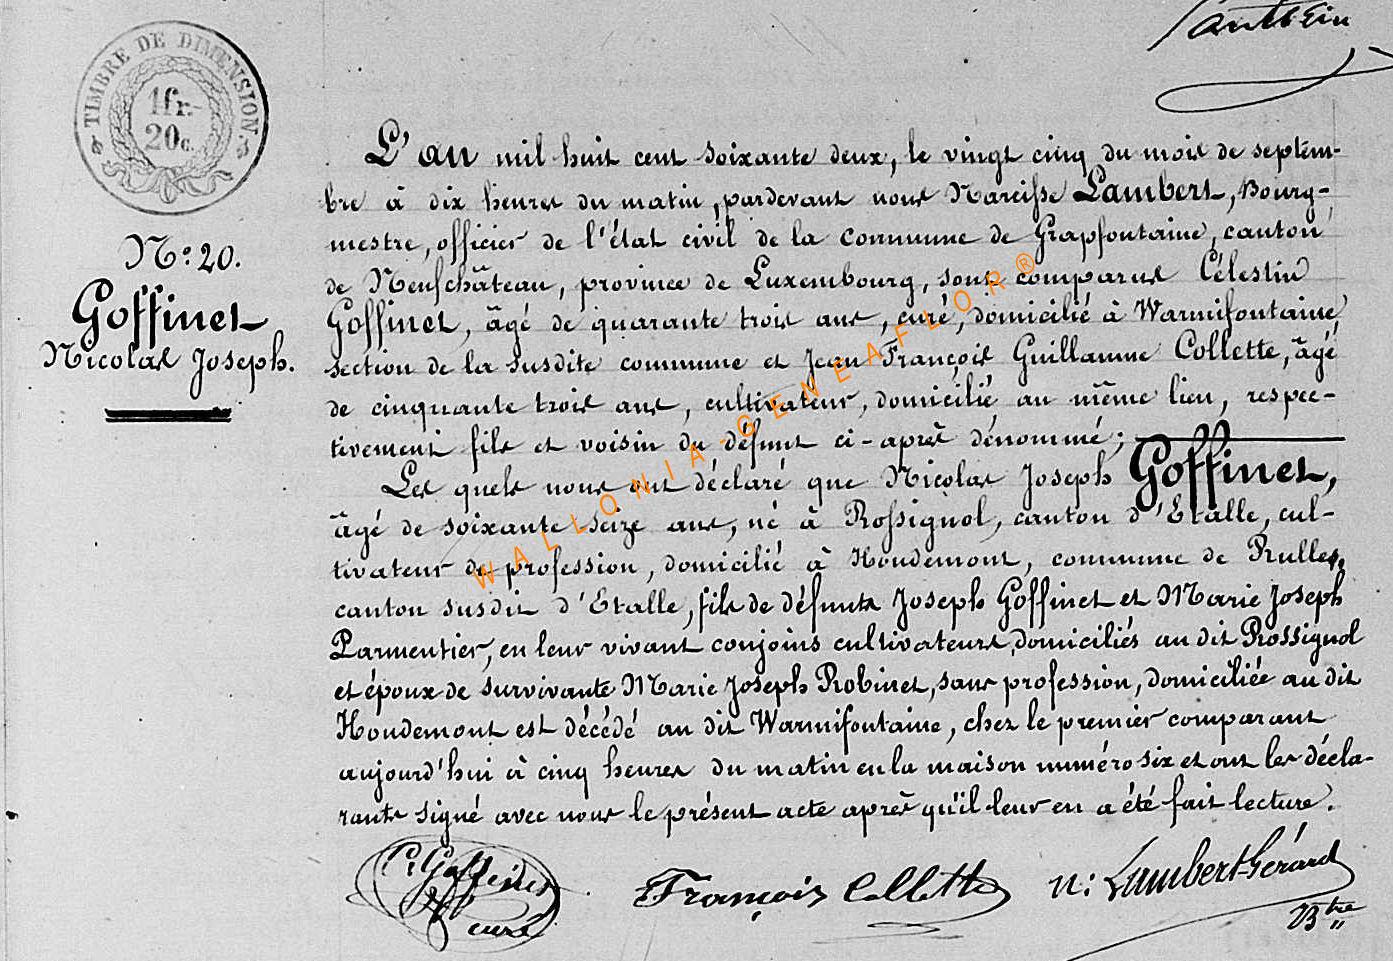 TIMBRE DE DIMENSION.
1fr.
20c.
N° 20.
Goffinet
Nicolas Joseph.
L'an mil huit cent soixante deux, le vingt cinq du mois de septem-
bre à dix heures du matin, pardevant nous Narcisse Lambert, Bourg-
mestre, officier de l'état civil de la commune de Grapfontaine, canton
de Neufchâteau, province de Luxembourg, sont comparus Célestin
Goffinet, âgé de quarante trois ans, curé, domicilié à Warmifontaine
section de la susdite commune et Jean François Guillaume Collette, âgé
de cinquante trois ans, cultivateur, domicilié au même lieu, respec-
tivement fils et voisin du défunt ci-après dénommé;
Les quels nous ont déclaré que Nicolas Joseph Goffinet,
âgé de soixante seize ans, né à Rossignol, canton d'Etalle, cul-
tivateur de profession, domicilié à Houdemont, commune de Rulles,
canton susdit d'Etalle, fils de défunts Joseph Goffinet et Marie Joseph
Parmentier, en leur vivant conjoins cultivateurs, domiciliés au dit Rossignol
et époux de survivante Marie Joseph Robinet, sans profession, domiciliée au dit
Houdemont est décédé au dit Warmifontaine, chez le premier comparant
aujourd'hui à cinq heures du matin en la maison numéro six et ont les décla-
rants signé avec nous le présent acte après qu'il leur en a été fait lecture.
C: Goffinet
curé
François Collette
N: Lambert-Gérard
Btre
WALLONIA-GENEAFLOR®